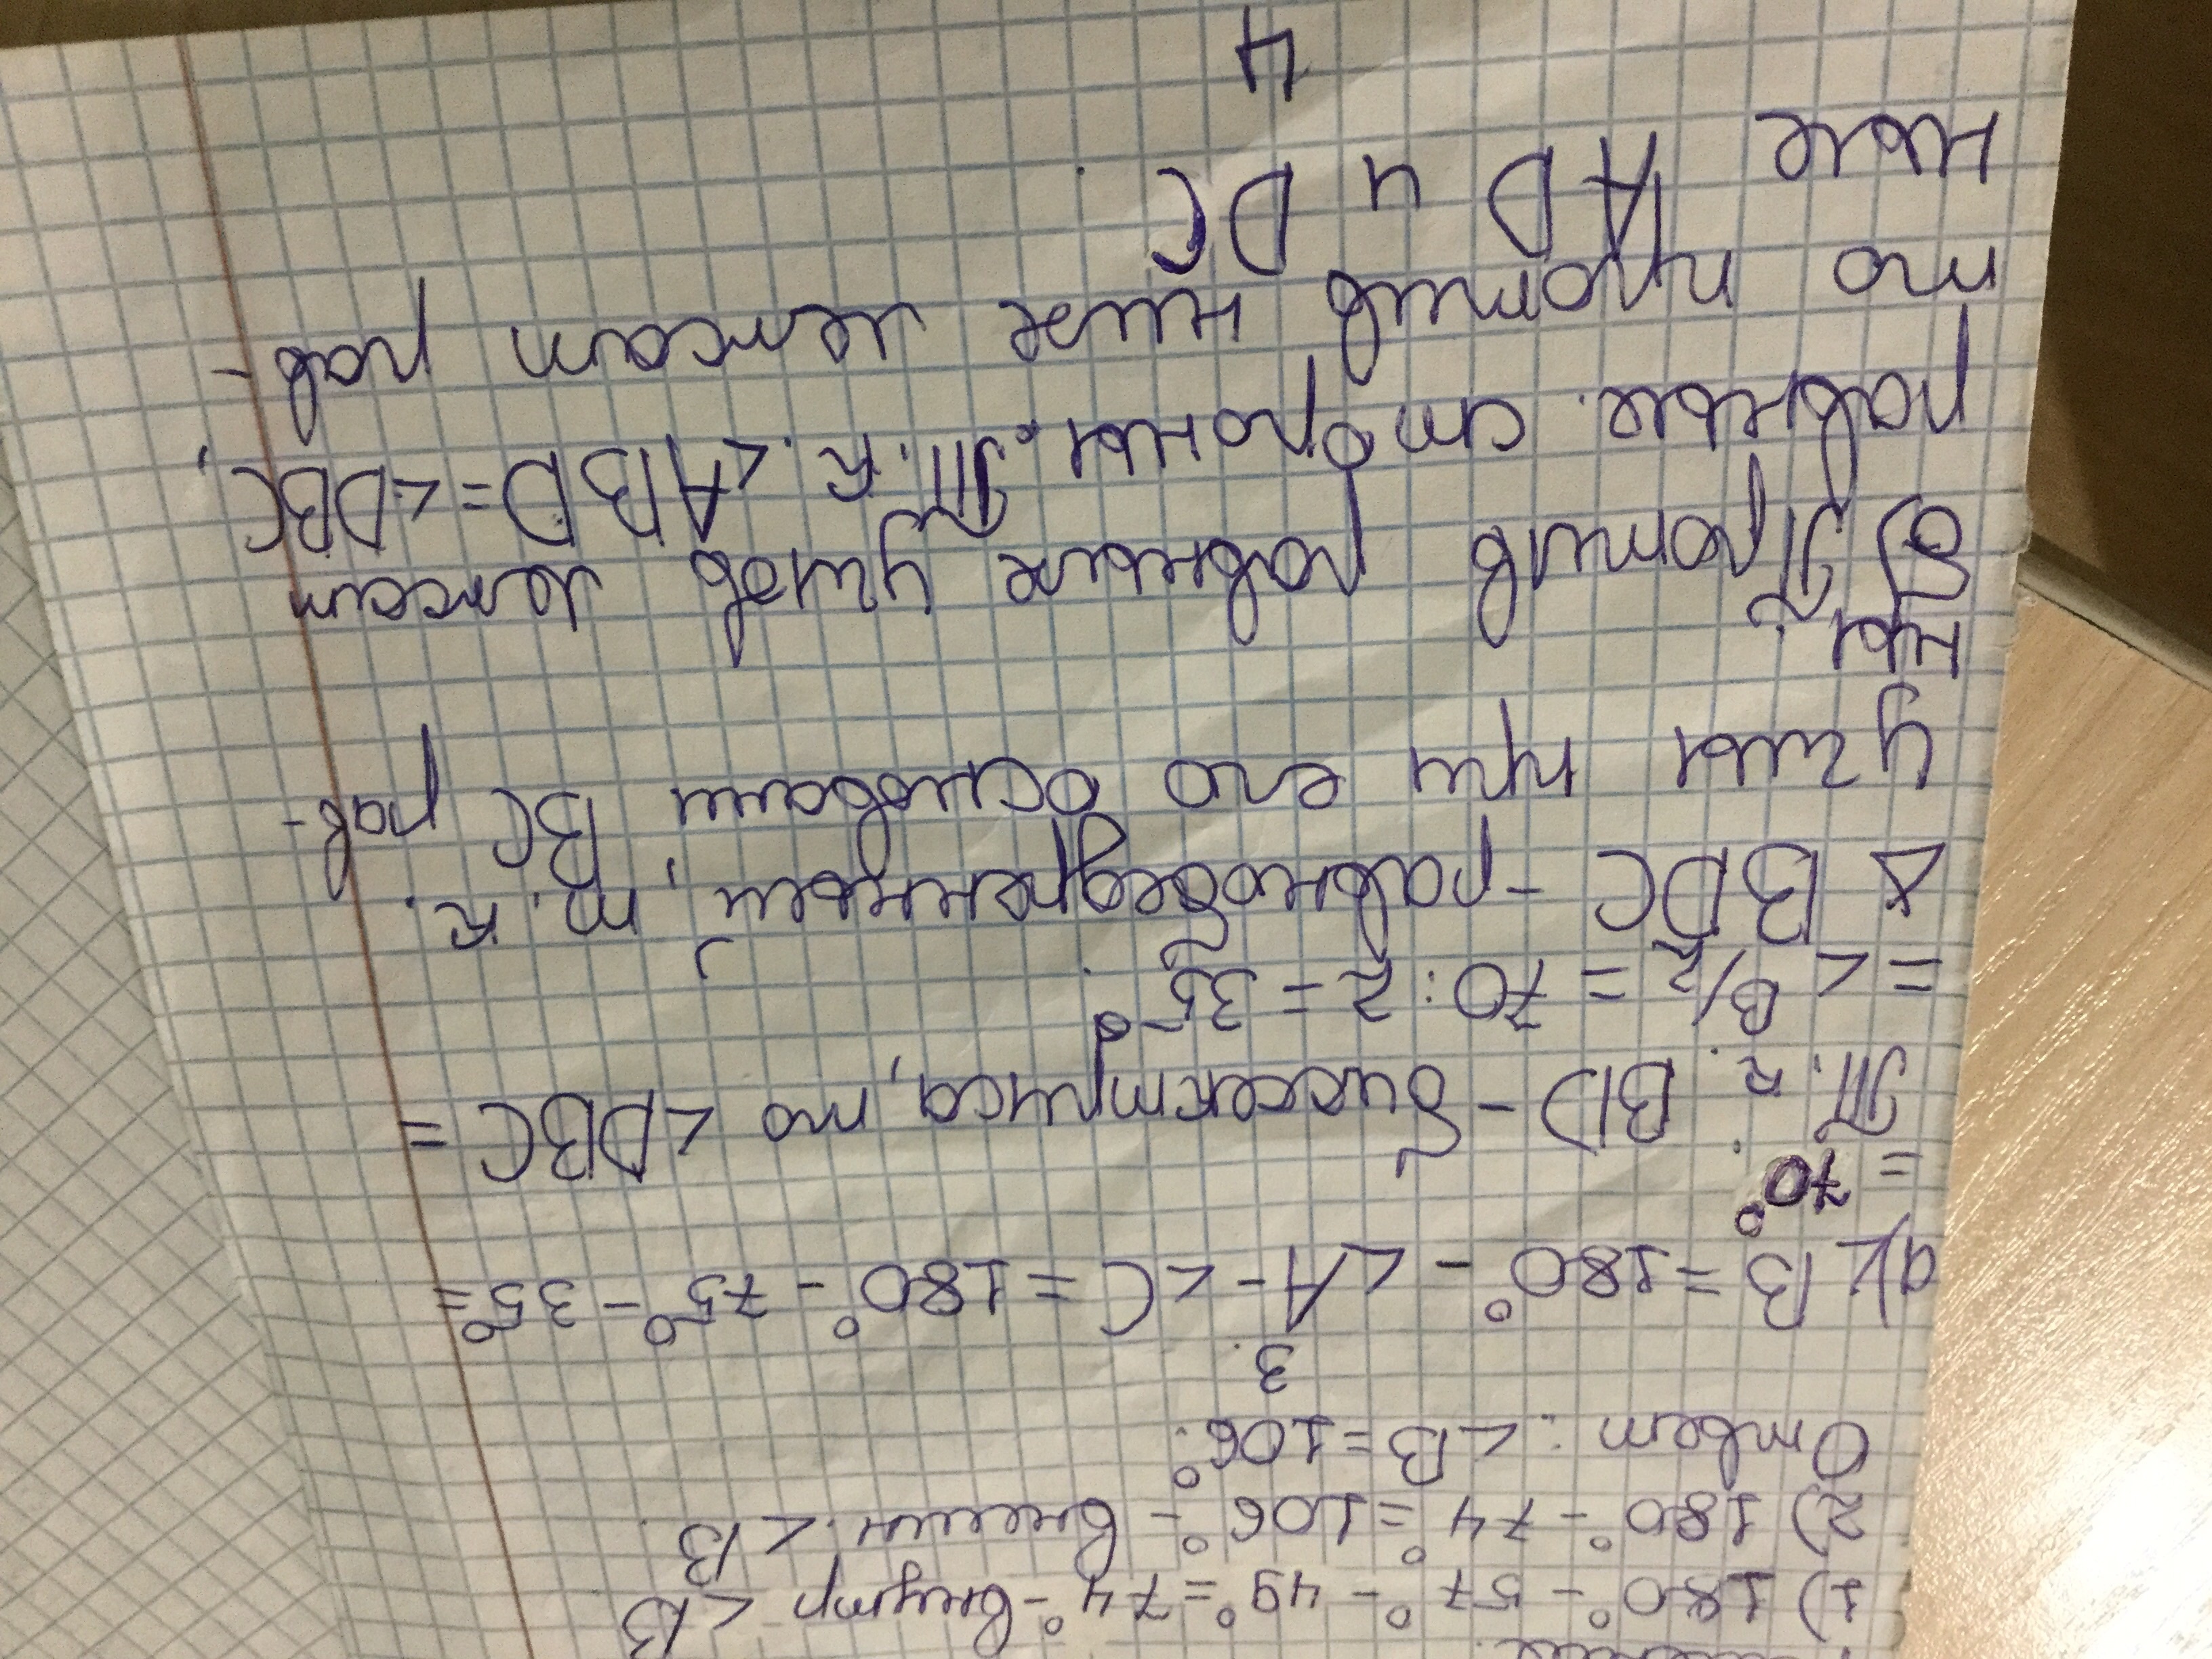 1) 180° - 57° - 49° = 74° - внутр <B
2) 180° - 74° = 106° - внешн. <B.
Ответ: <B = 106°.
3.
а) <B = 180° - <A - <C = 180° - 75° - 35° =
= 70°.
Т. к. BD - биссектриса, то <DBC =
= <B/2 = 70 : 2 = 35°.
△ BDC - равнобедренный, т. к.
углы при его основани BC рав-
ны
б) Против равных углов лежат
равные стороны. Т. к. <ABD = <DBC,
то против них лежат рав-
ные AD и DC.
4